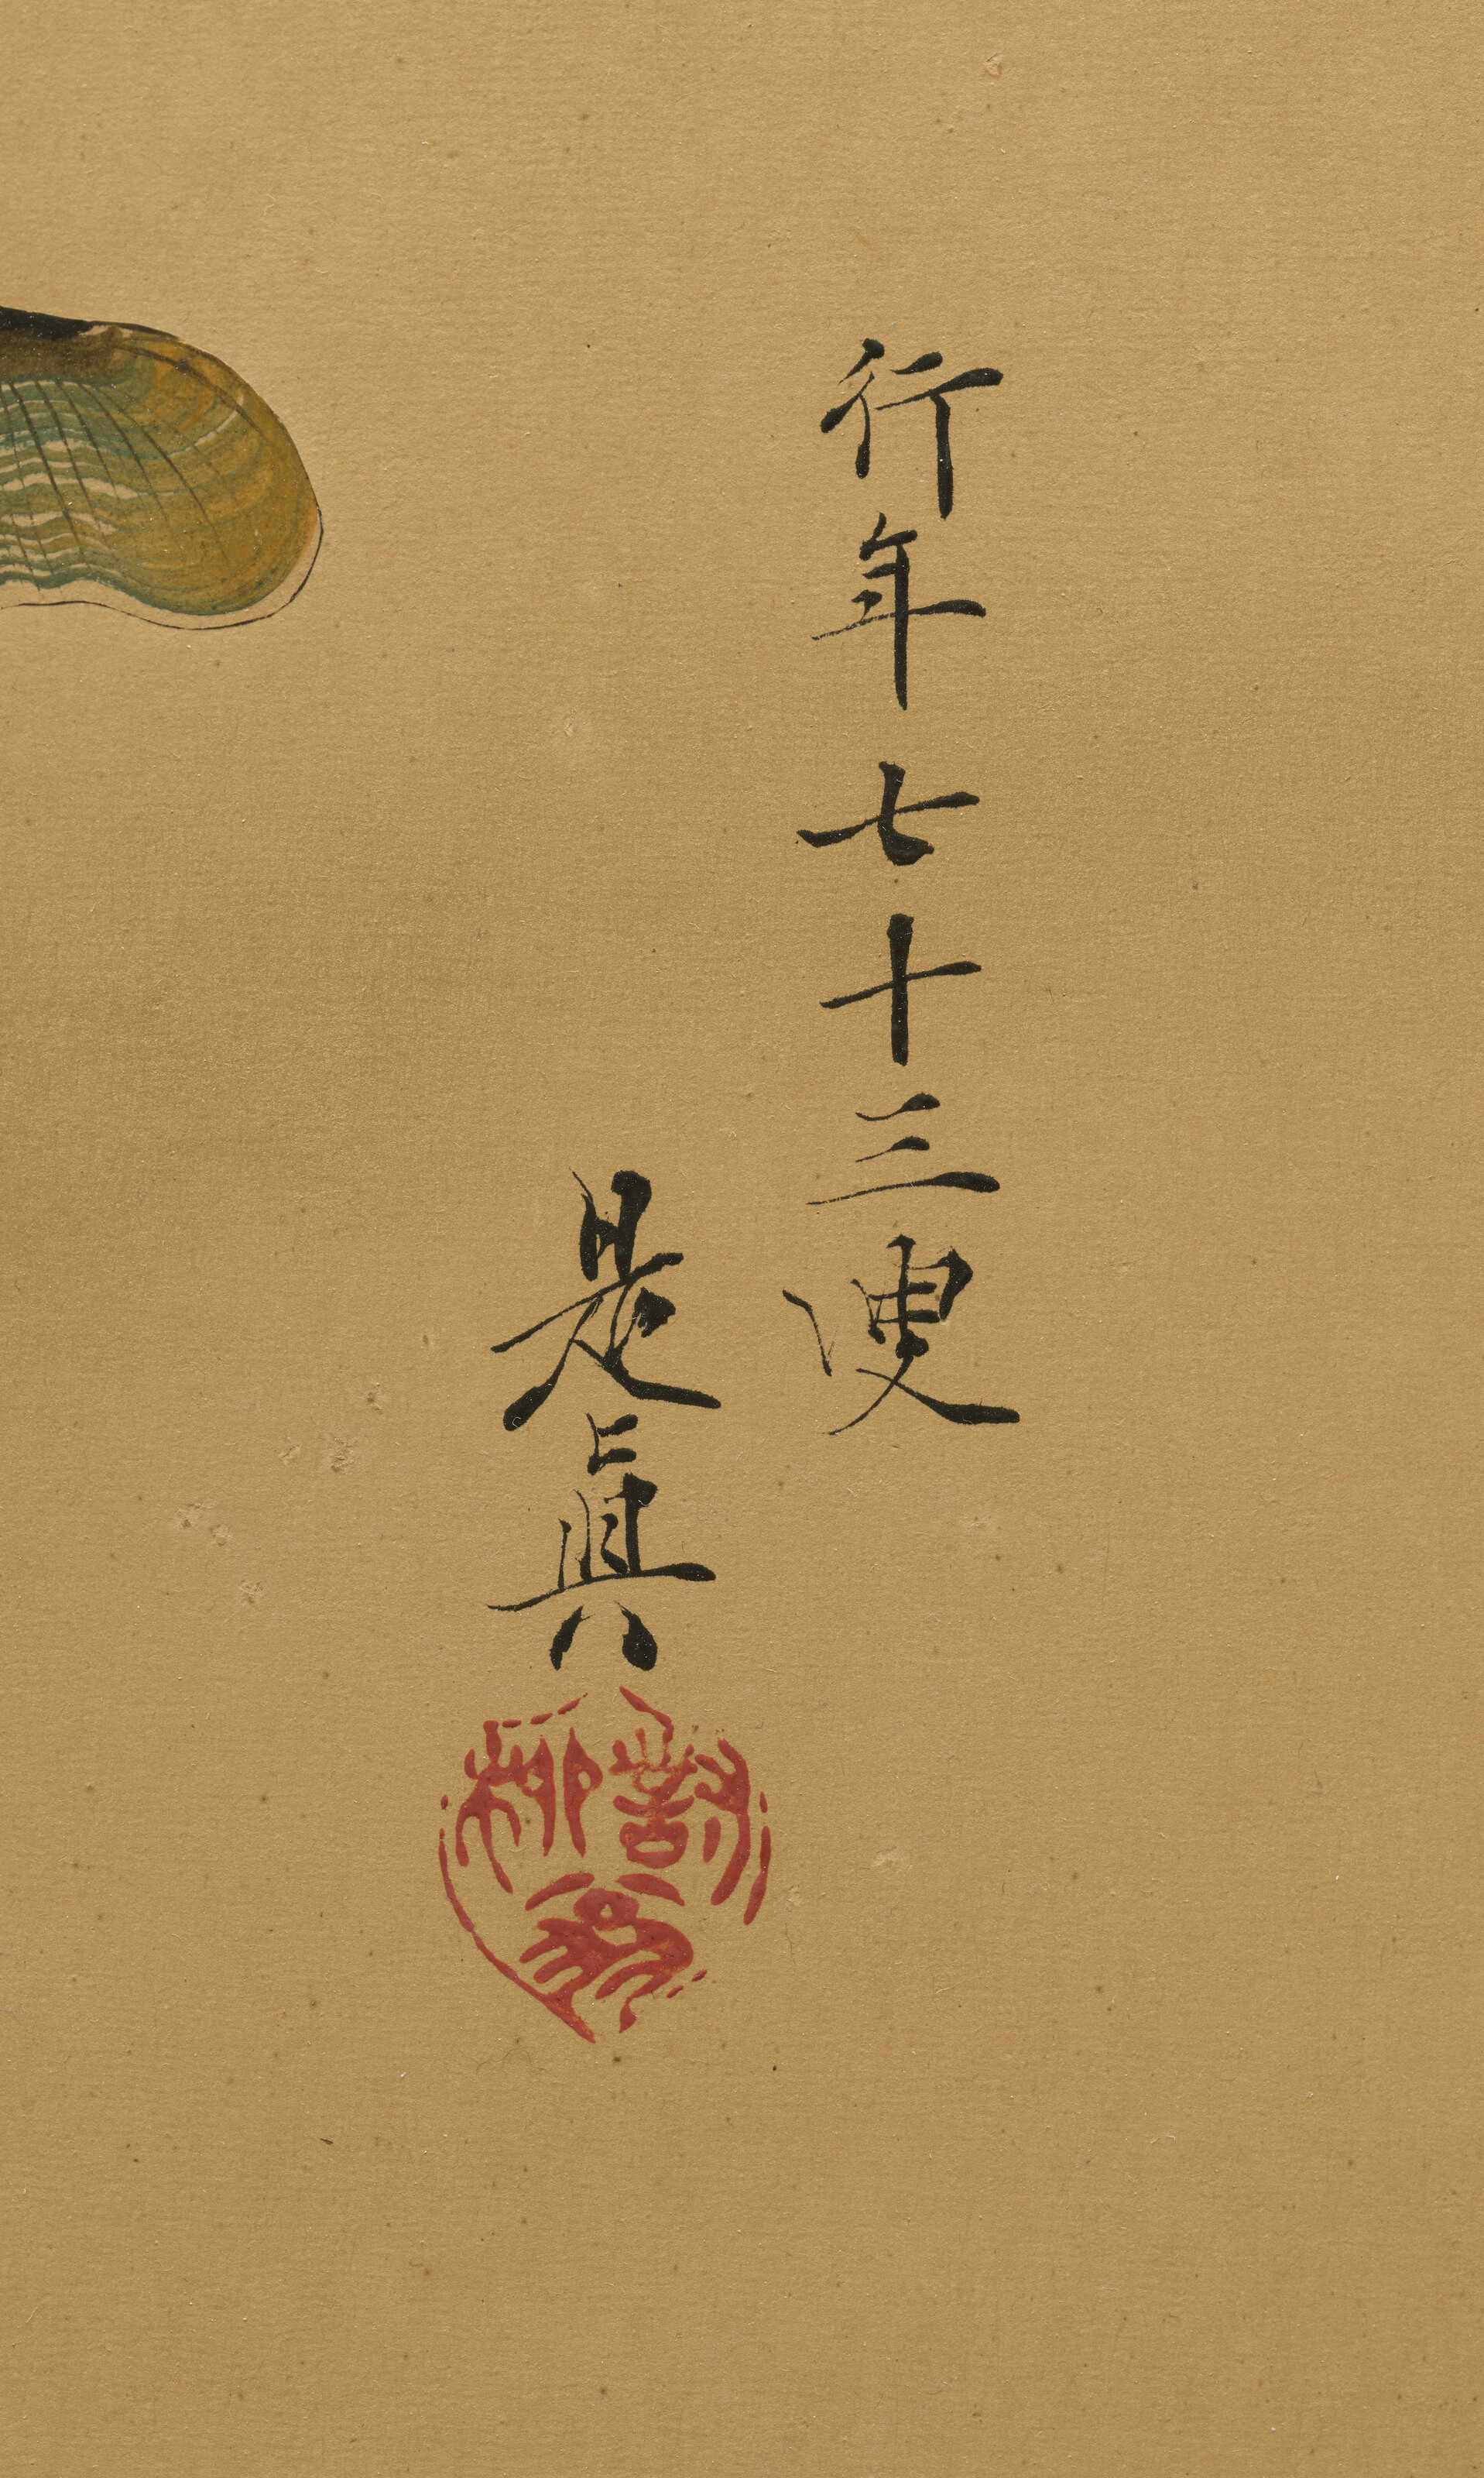 行年七十三叟
是眞